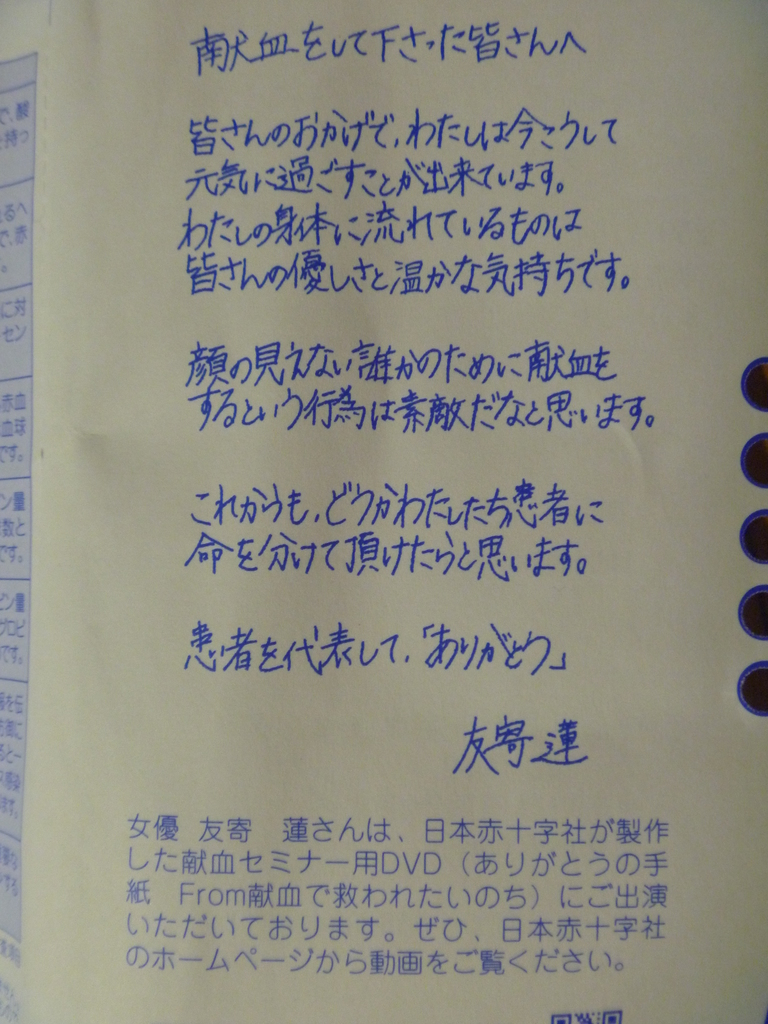 献血をして下さった皆さんへ
皆さんのおかげで、わたしは今こうして
元気に過ごすことが出来ています。
わたしの身体に流れているものは
皆さんの優しさと温かな気持ちです。
顔の見えない誰かのために献血を
するという行為は素敵だなと思います。
これからも、どうかわたしたち患者に
命を分けて頂けたらと思います。
患者を代表して、「ありがとう」
友寄 蓮
女優 友寄 蓮さんは、日本赤十字社が製作
した献血セミナー用DVD（ありがとうの手
紙 From献血で救われたいのち）にご出演
いただいております。ぜひ、日本赤十字社
のホームページから動画をご覧ください。
に対
セン
赤血
血球
です。
ン量
数と
です。
ビン量
グロビ
のです。